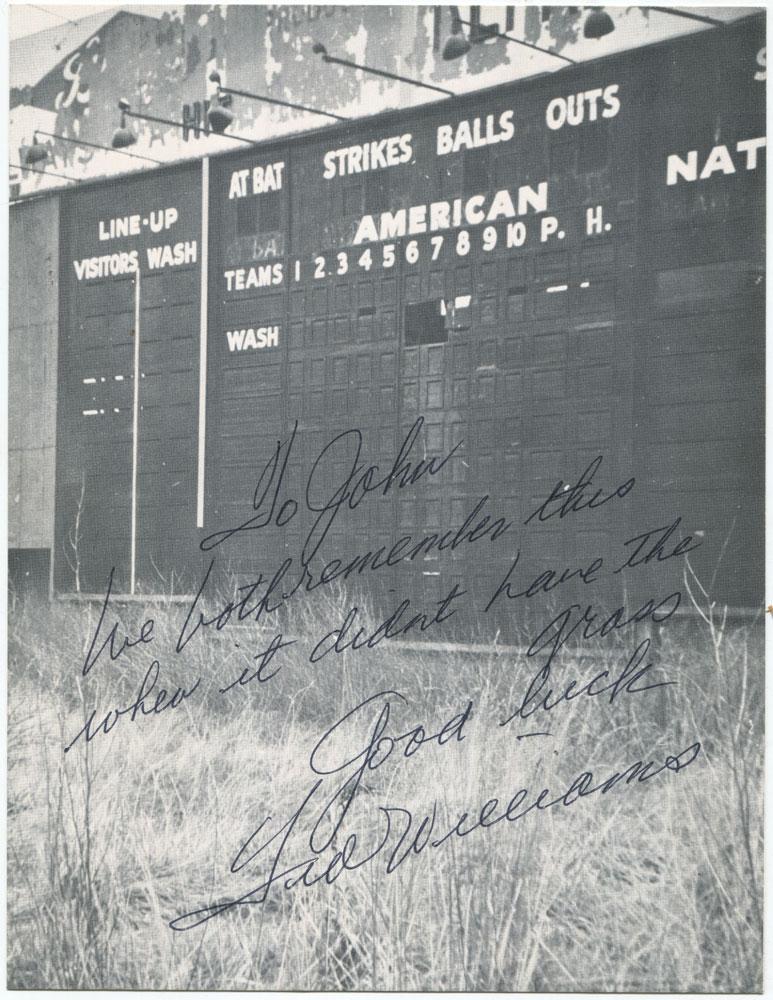 AT BAT STRIKES BALLS OUTS
NAT
LINE-UP
VISITORS WASH
AMERICAN
TEAMS 1 2 3 4 5 6 7 8 9 10 P. H.
WASH
To John
We both remember this
when it didnt have the
grass
Good luck
Ted Williams